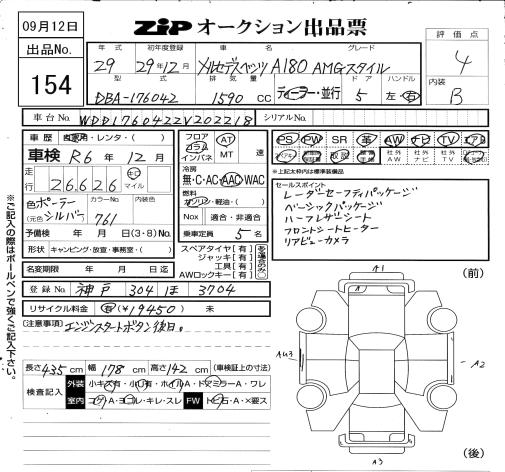 09月12日
ZIP オークション出品票
出品No.
154
年式 初年度登録 車名 グレード
29 29年12月 メルセデスベンツ A180 AMGスタイル
型式 排気量 ドア ハンドル
DBA-176042 1590 cc ディーラー・並行 5 左・右
評価点
4
内装
B
車台No. WDD1760422V202218 シリアルNo.
車歴 自家用・レンタ・( )
車検 R6年 12月
走行 26,626 キロ マイル
色 ポーラー シルバー カラーNo. 761 内装色
(元色)
予備検 年 月 日(3・8)No.
形状 キャンピング・放送・事務室・( )
名変期限 年 月 日迄
フロア コラム インパネ AT MT 速
冷房 無・C・AC・AAC・WAC
燃料 ガソリン・軽油・( )
Nox 適合・非適合
乗車定員 5名
スペアタイヤ[有]
ジャッキ[有]
工具[有]
AWロックキー[有]
ある場合のみ○
PS PW SR 革 AW ナビ TV エアB
取説 社外AW 社外ナビ 社外TV
※上記太枠内は標準装備品
セールスポイント
レーダーセーフティパッケージ
ベーシックパッケージ
ハーフレザーシート
フロントシートヒーター
リアビューカメラ
登録No. 神戸 304 ほ 3704
リサイクル料金 有(¥19450) 未
(注意事項) エンジンスタートボタン後日。
長さ435cm 幅178cm 高さ142cm (車検証上の寸法)
検査記入
外装 小キズ有・小凹有・ホイルA・ドアミラーA・ワレ
室内 コゲA・ヨゴレ・キレ・スレ FW トビ石A・×要ス
(前)
A1
AU3
A2
A3
(後)
※ご記入の際はボールペンで強くご記入下さい。